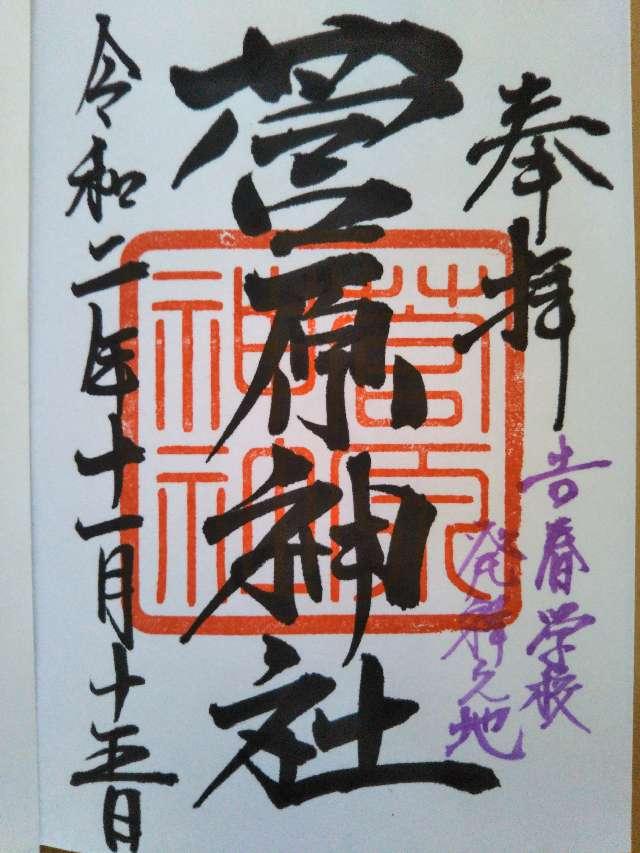 奉拝
吉春学校
発祥之地
菅原神社
令和二年十一月十五日